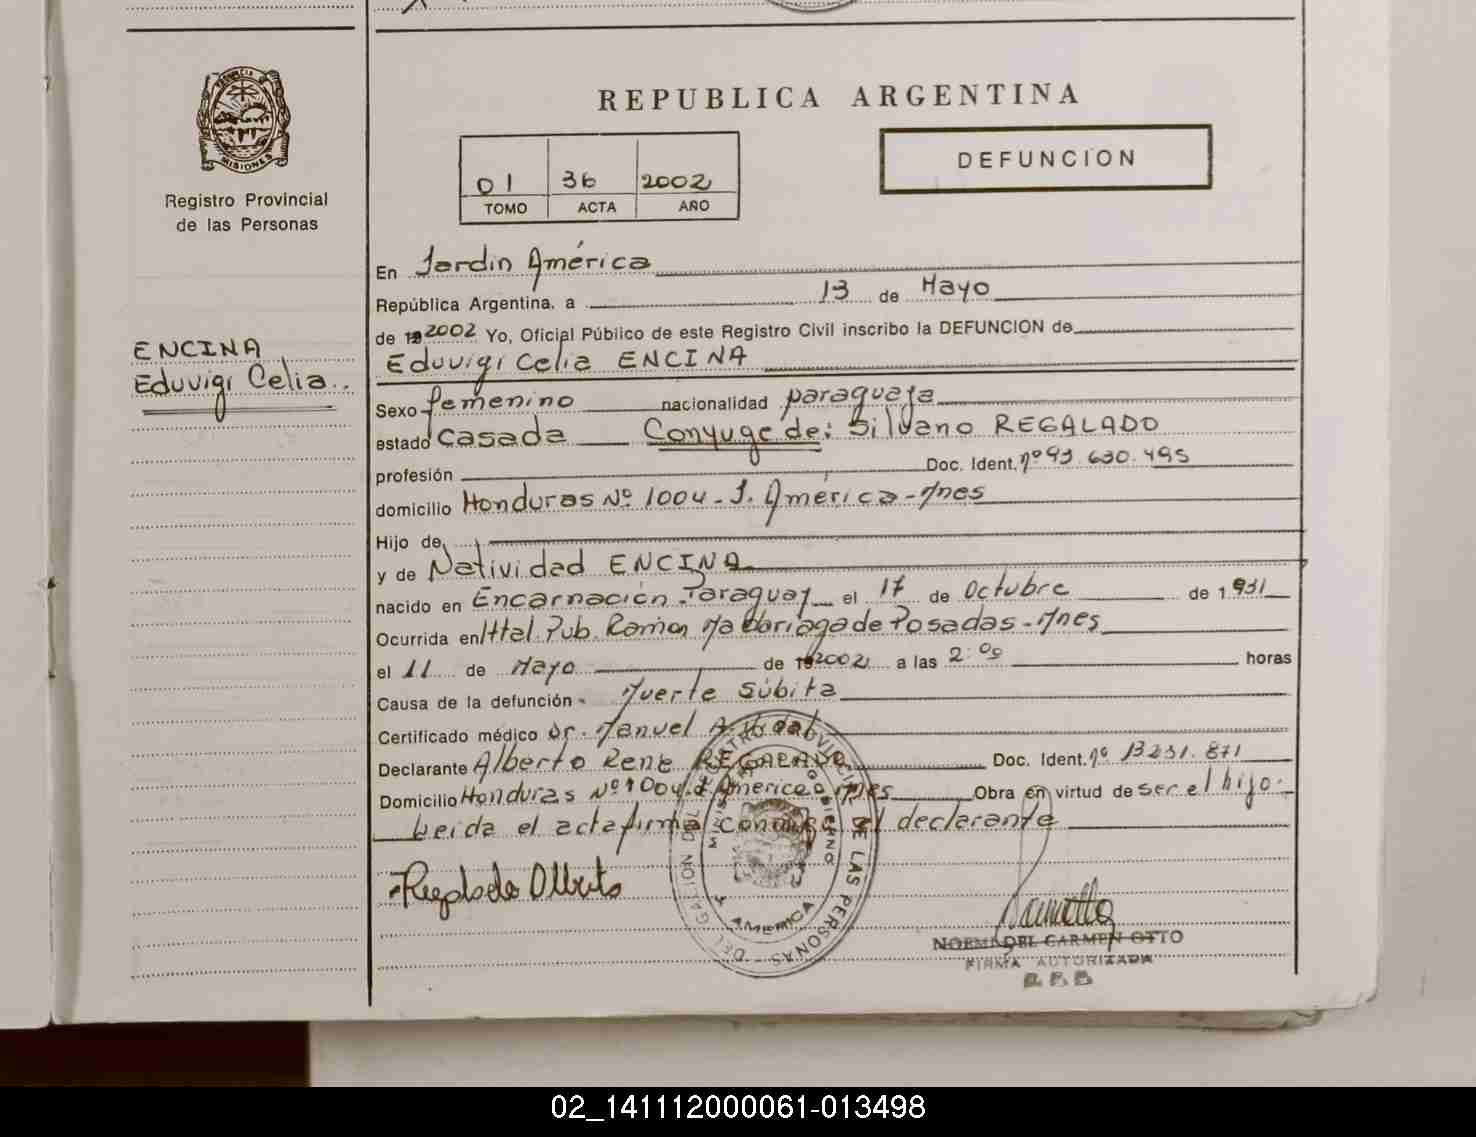 PROVINCIA DE
MISIONES
Registro Provincial
de las Personas
ENCINA
Eduvigi Celia
REPUBLICA ARGENTINA
01 36 2002
TOMO ACTA AÑO
DEFUNCION
En Jardin América
República Argentina, a 13 de Mayo
de 19 2002 Yo, Oficial Público de este Registro Civil inscribo la DEFUNCION de
Eduvigi Celia ENCINA
Sexo femenino nacionalidad paraguaya
estado casada Conyuge de: Silvano REGALADO
profesión Doc. Ident. nº 93.630.495
domicilio Honduras Nº 1004 - J. América - Mnes
Hijo de
y de Natividad ENCINA
nacido en Encarnación Paraguay el 17 de Octubre de 1931
Ocurrida en Htal. Pub. Ramon Madariaga de Posadas - Mnes
el 11 de Mayo de 19 2002 a las 2:00 horas
Causa de la defunción - Muerte Súbita
Certificado médico Dr. Manuel A. Vidal
Declarante Alberto Rene REGALADO Doc. Ident. nº 13231.871
Domicilio Honduras Nº 1004 J. America Mnes Obra en virtud de ser el hijo.
Leida el acta firma conmigo el declarante
Regalado Alberto
NOEMI DEL CARMEN OTTO
FIRMA AUTORIZADA
02_141112000061-013498